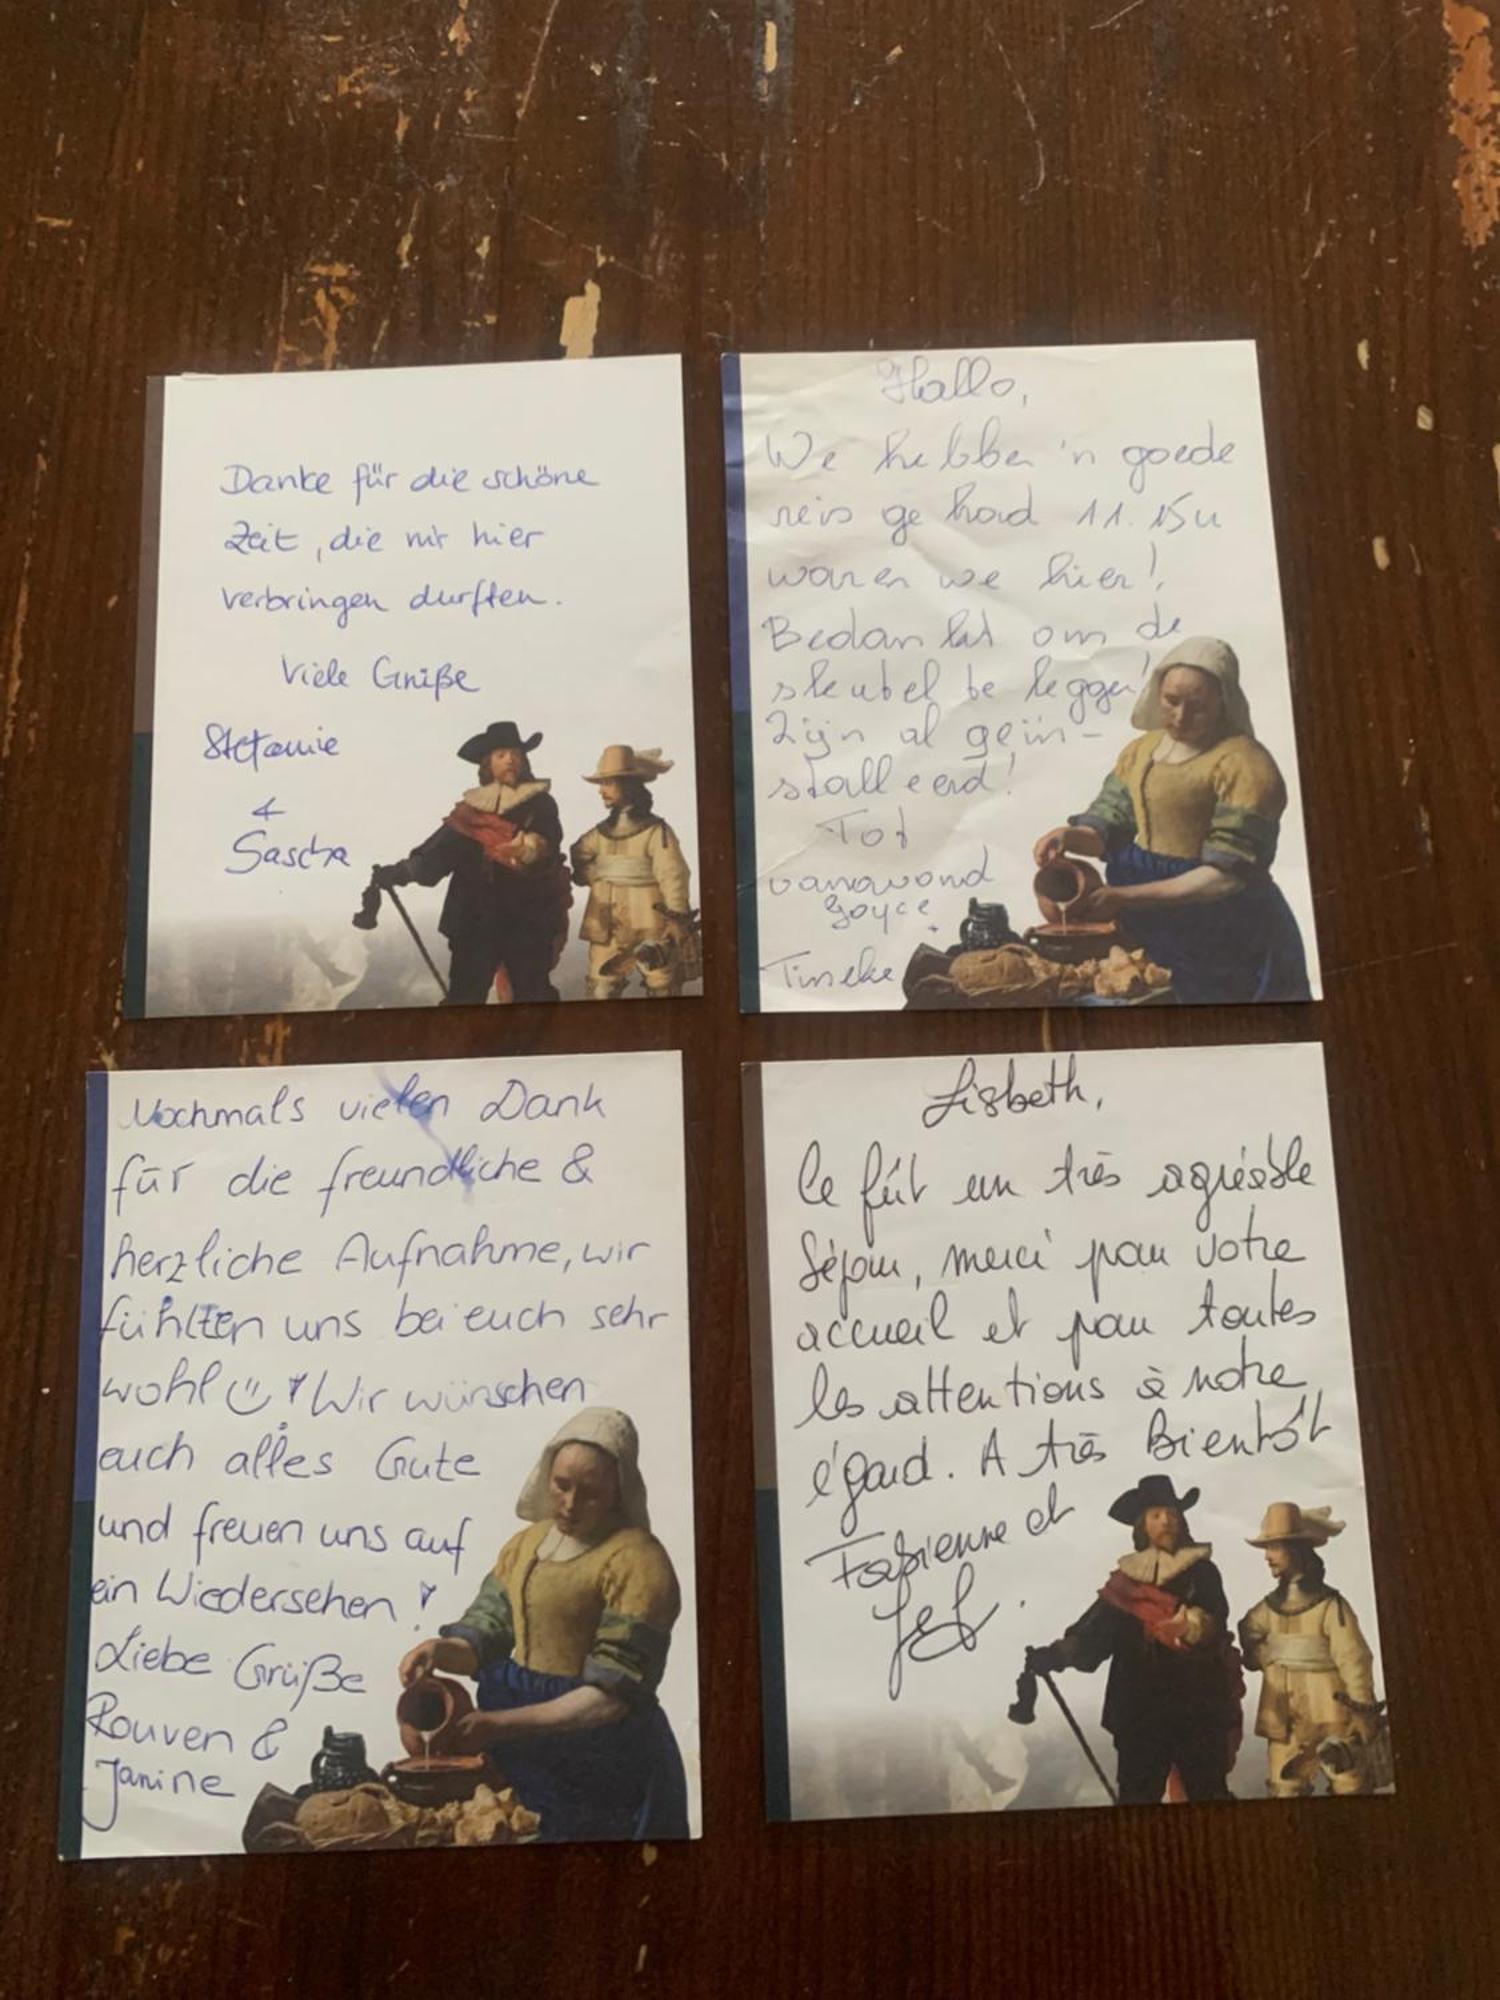 Danke für die schöne
Zeit, die wir hier
verbringen durften.
Viele Grüße
Stefanie
&
Sascha
Hallo,
We hebben 'n goede
reis gehad 11.15u
waren we hier!
Bedankt om de
sleutel te leggen!
Zijn al geïn-
stalleerd!
Tot
vanavond
Joyce
+
Tineke
Nochmals vielen Dank
für die freundliche &
herzliche Aufnahme, wir
fühlten uns bei euch sehr
wohl ☺! Wir wünschen
euch alles Gute
und freuen uns auf
ein Wiedersehen!
Liebe Grüße
Rouven &
Janine
Lisbeth,
Ce fût un très agréable
Séjour, merci pour votre
accueil et pour toutes
les attentions à notre
égard. A très Bientôt
Fabienne et
Jef.